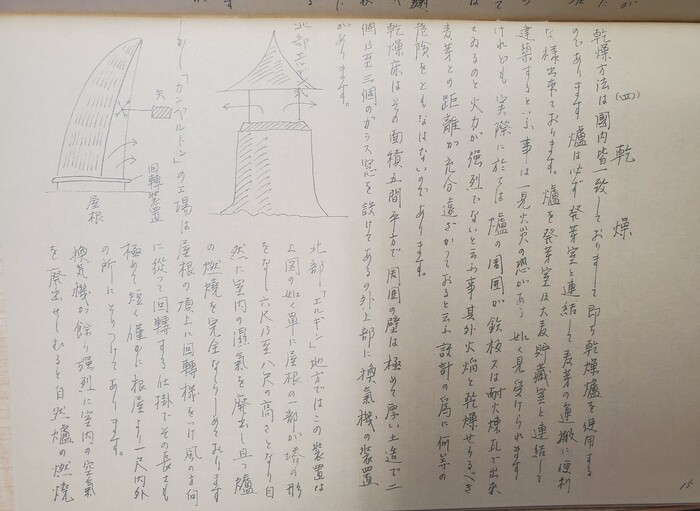 (四) 乾燥
乾燥方法は國内皆一致しておりまして即ち乾燥爐を使用する
のであります 爐は必ず発芽室と連結して麦芽の運搬に便利
な様出来ております。爐を発芽室又は大麦貯蔵室と連結して
建築するといふ事は一見火災の恐がある如く見受けられます
けれども実際に於ては爐の周囲が鉄板又は耐火煉瓦で出来
てゐるのと火力が強烈でないと云ふ事其外火焰と乾燥せらるべき
麦芽との距離が充分遠ざかつておると云ふ設計の為に何等の
危険をともなはないのであります。
乾燥床はその面積五間平方で周囲の壁は極めて厚い土造で二
個乃至三個のガラス窓を設けてあるの外上部に換氣機の装置
があります。
北部エルギン式
北部「エルギン」地方ではこの装置は
上図の如く單に屋根の一部が塔の形
をなし六尺乃至八尺の高さとなり自
然に室内の濕氣を廃出し且つ爐
の燃焼を完全ならしめております
かし「カンベルトン」の工場は屋根の頂上に回轉様をつけ風の方何
に從つて回轉する仕掛でその長さも
極めて短く僅かに根屋より一尺内外
の所にそりつけてあります。
換気機が餘り強烈に室内の空氣
を廃出せしむると自然爐の燃焼
矢
回轉装置
屋根
15